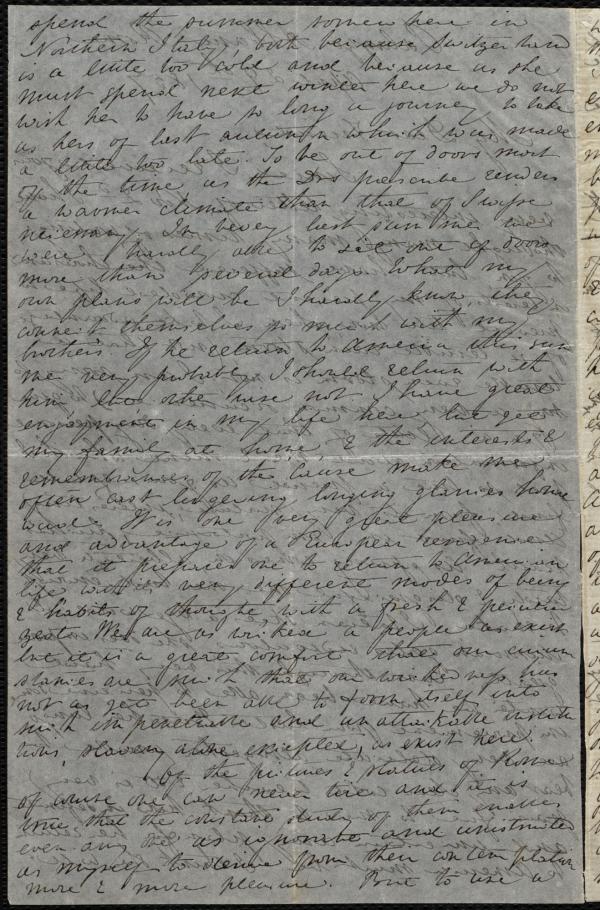 spend the summer somewhere in
Northern Italy, both because Switzerland
is a little too cold and because as she
must spend next winter here we do not
wish her to have so long a journey to take
as hers of last autumn which was made
a little too late. To be out of doors most
of the time, as the Drs prescribe renders
a warmer climate than that of Swisse
necessary. In Vevey last summer we
were hardly able to sit out of doors
more than several days. What my
own plans will be I hardly know, they
connect themselves so much with my
brother's. If he return to America this sum
mer very probably I should return with
him but otherwise not. I have great
enjoyment in my life here but yet
my family at home, & the interests &
remembrances of the Cause make me
often cast lingering, longing glances home
ward. It is one very great pleasure
and advantage of a European residence
that it prepares one to return to American
life with its very different modes of being
& habits of thought with a fresh & peculiar
zest. We are as wicked a people as exist
but it is a great comfort that our circum
stances are such that our wickedness has
not as yet been able to form itself into
such impenetrable and unattackable institu
tions, slavery alone excepted, as exist here.
Of the pictures & statues of Rome
of course one can never tire and it is
true that the constant study of them enables
even any one as ignorant and uninstructed
as myself to derive from their contemplation
more & more pleasure. But to use a